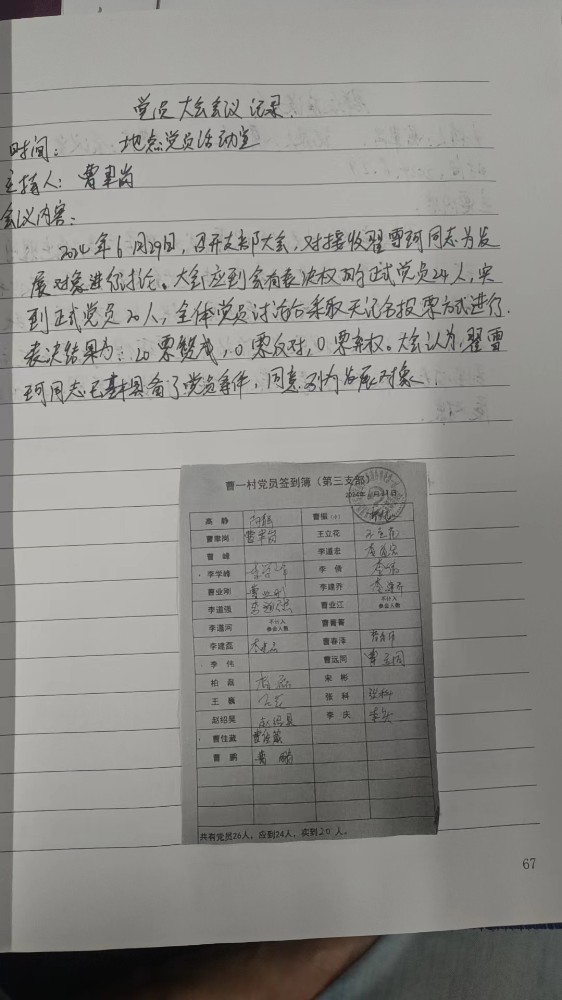 党员大会会议记录
时间： 地点党员活动室
主持人：曹聿岗
会议内容：
2024年6月29日，召开支部大会，对接收翟雪珂同志为发
展对象进行讨论。大会应到会有表决权的正式党员24人，实
到正式党员20人，全体党员讨论后采取无记名投票方式进行
表决结果为：20票赞成，0票反对，0票弃权。大会认为，翟雪
珂同志已基本具备了党员条件，同意列为发展对象。
曹一村党员签到簿（第三支部）
2024年6月29日
高 静 高静 曹振（小）
曹聿岗 曹聿岗 王立花 王立花
曹 峰 李道宏 李道宏
李学峰 李学峰 李倩 李倩
曹业刚 曹业刚 李建乔 李建乔
李道强 李道强 曹业江 不计入参会人数
李道河 不计入参会人数
李建磊 李建磊 曹春泽 曹春泽
李 伟 曹远同 曹远同
柏 磊 柏磊 宋 彬
王 巍 王巍 张 科 张科
赵绍昊 赵绍昊 李 庆 李庆
曹佳葳 曹佳葳
曹 鹏 曹鹏
共有党员26人，应到24人，实到20人。
67